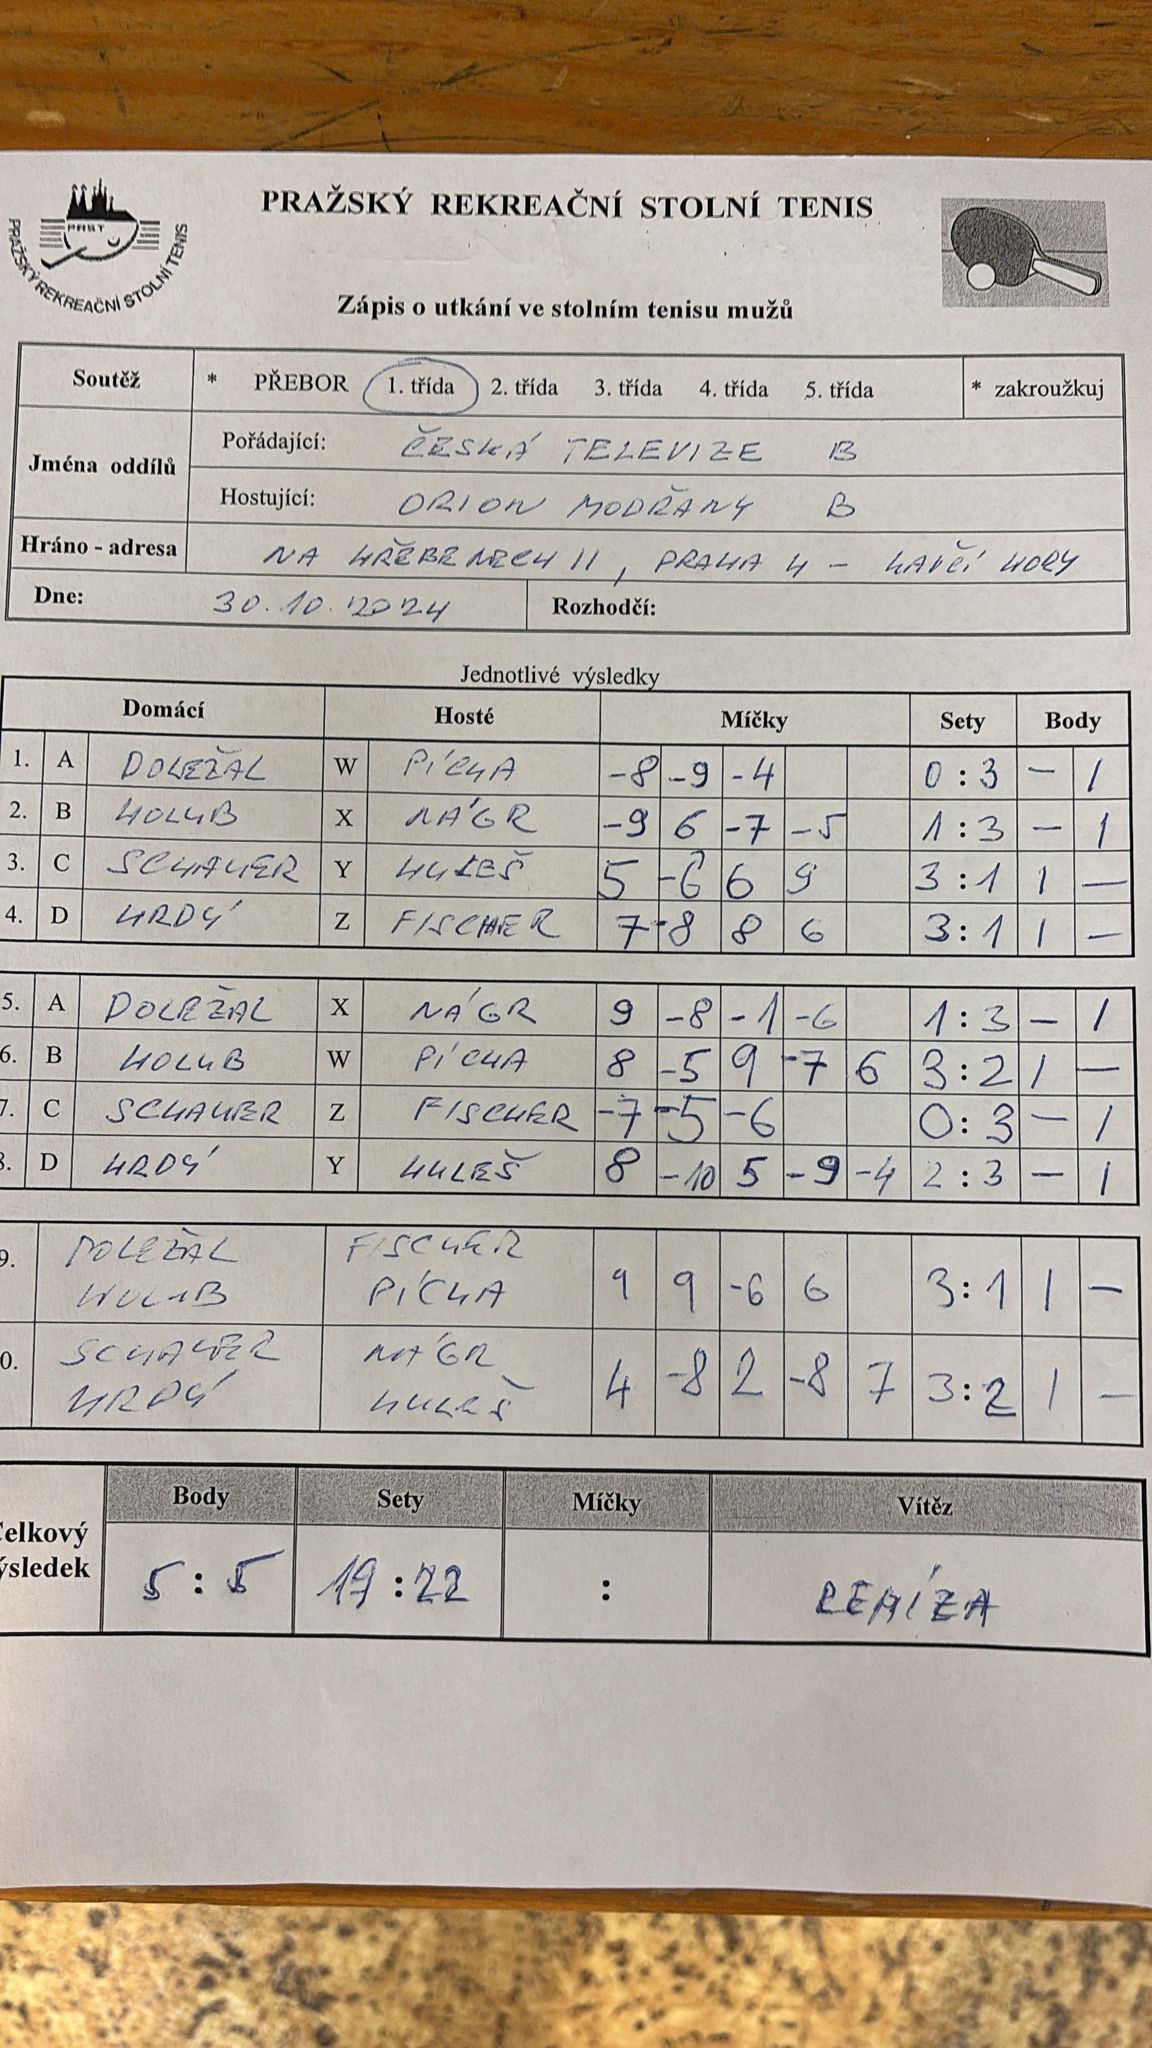 PRAŽSKÝ REKREAČNÍ STOLNÍ TENIS
PRST
PRAŽSKÝ REKREAČNÍ STOLNÍ TENIS
Zápis o utkání ve stolním tenisu mužů
Soutěž * PŘEBOR 1. třída 2. třída 3. třída 4. třída 5. třída * zakroužkuj
Jména oddílů
Pořádající: ČESKÁ TELEVIZE B
Hostující: ORION MODŘANY B
Hráno - adresa NA HŘEBENECH II, PRAHA 4 - KAVČÍ HORY
Dne: 30.10.2024 Rozhodčí:
Jednotlivé výsledky
Domácí Hosté Míčky Sety Body
1. A DOLEŽAL W PÍCHA -8 -9 -4 0:3 - 1
2. B HOLUB X NÁGR -9 6 -7 -5 1:3 - 1
3. C SCHAUER Y HULEŠ 5 -6 6 9 3:1 1 -
4. D HRDÝ Z FISCHER 7 -8 8 6 3:1 1 -
5. A DOLEŽAL X NÁGR 9 -8 -1 -6 1:3 - 1
6. B HOLUB W PÍCHA 8 -5 9 -7 6 3:2 1 -
7. C SCHAUER Z FISCHER -7 -5 -6 0:3 - 1
8. D HRDÝ Y HULEŠ 8 -10 5 -9 -4 2:3 - 1
9. DOLEŽAL FISCHER
HOLUB PÍCHA 9 9 -6 6 3:1 1 -
0. SCHAUER NÁGR
HRDÝ HULEŠ 4 -8 2 -8 7 3:2 1 -
Body Sety Míčky Vítěz
Celkový
výsledek 5:5 19:22 : REMÍZA